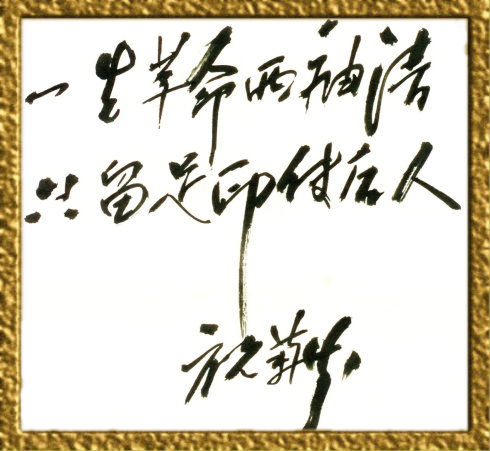 一生革命两袖清
只留足印付后人
祝